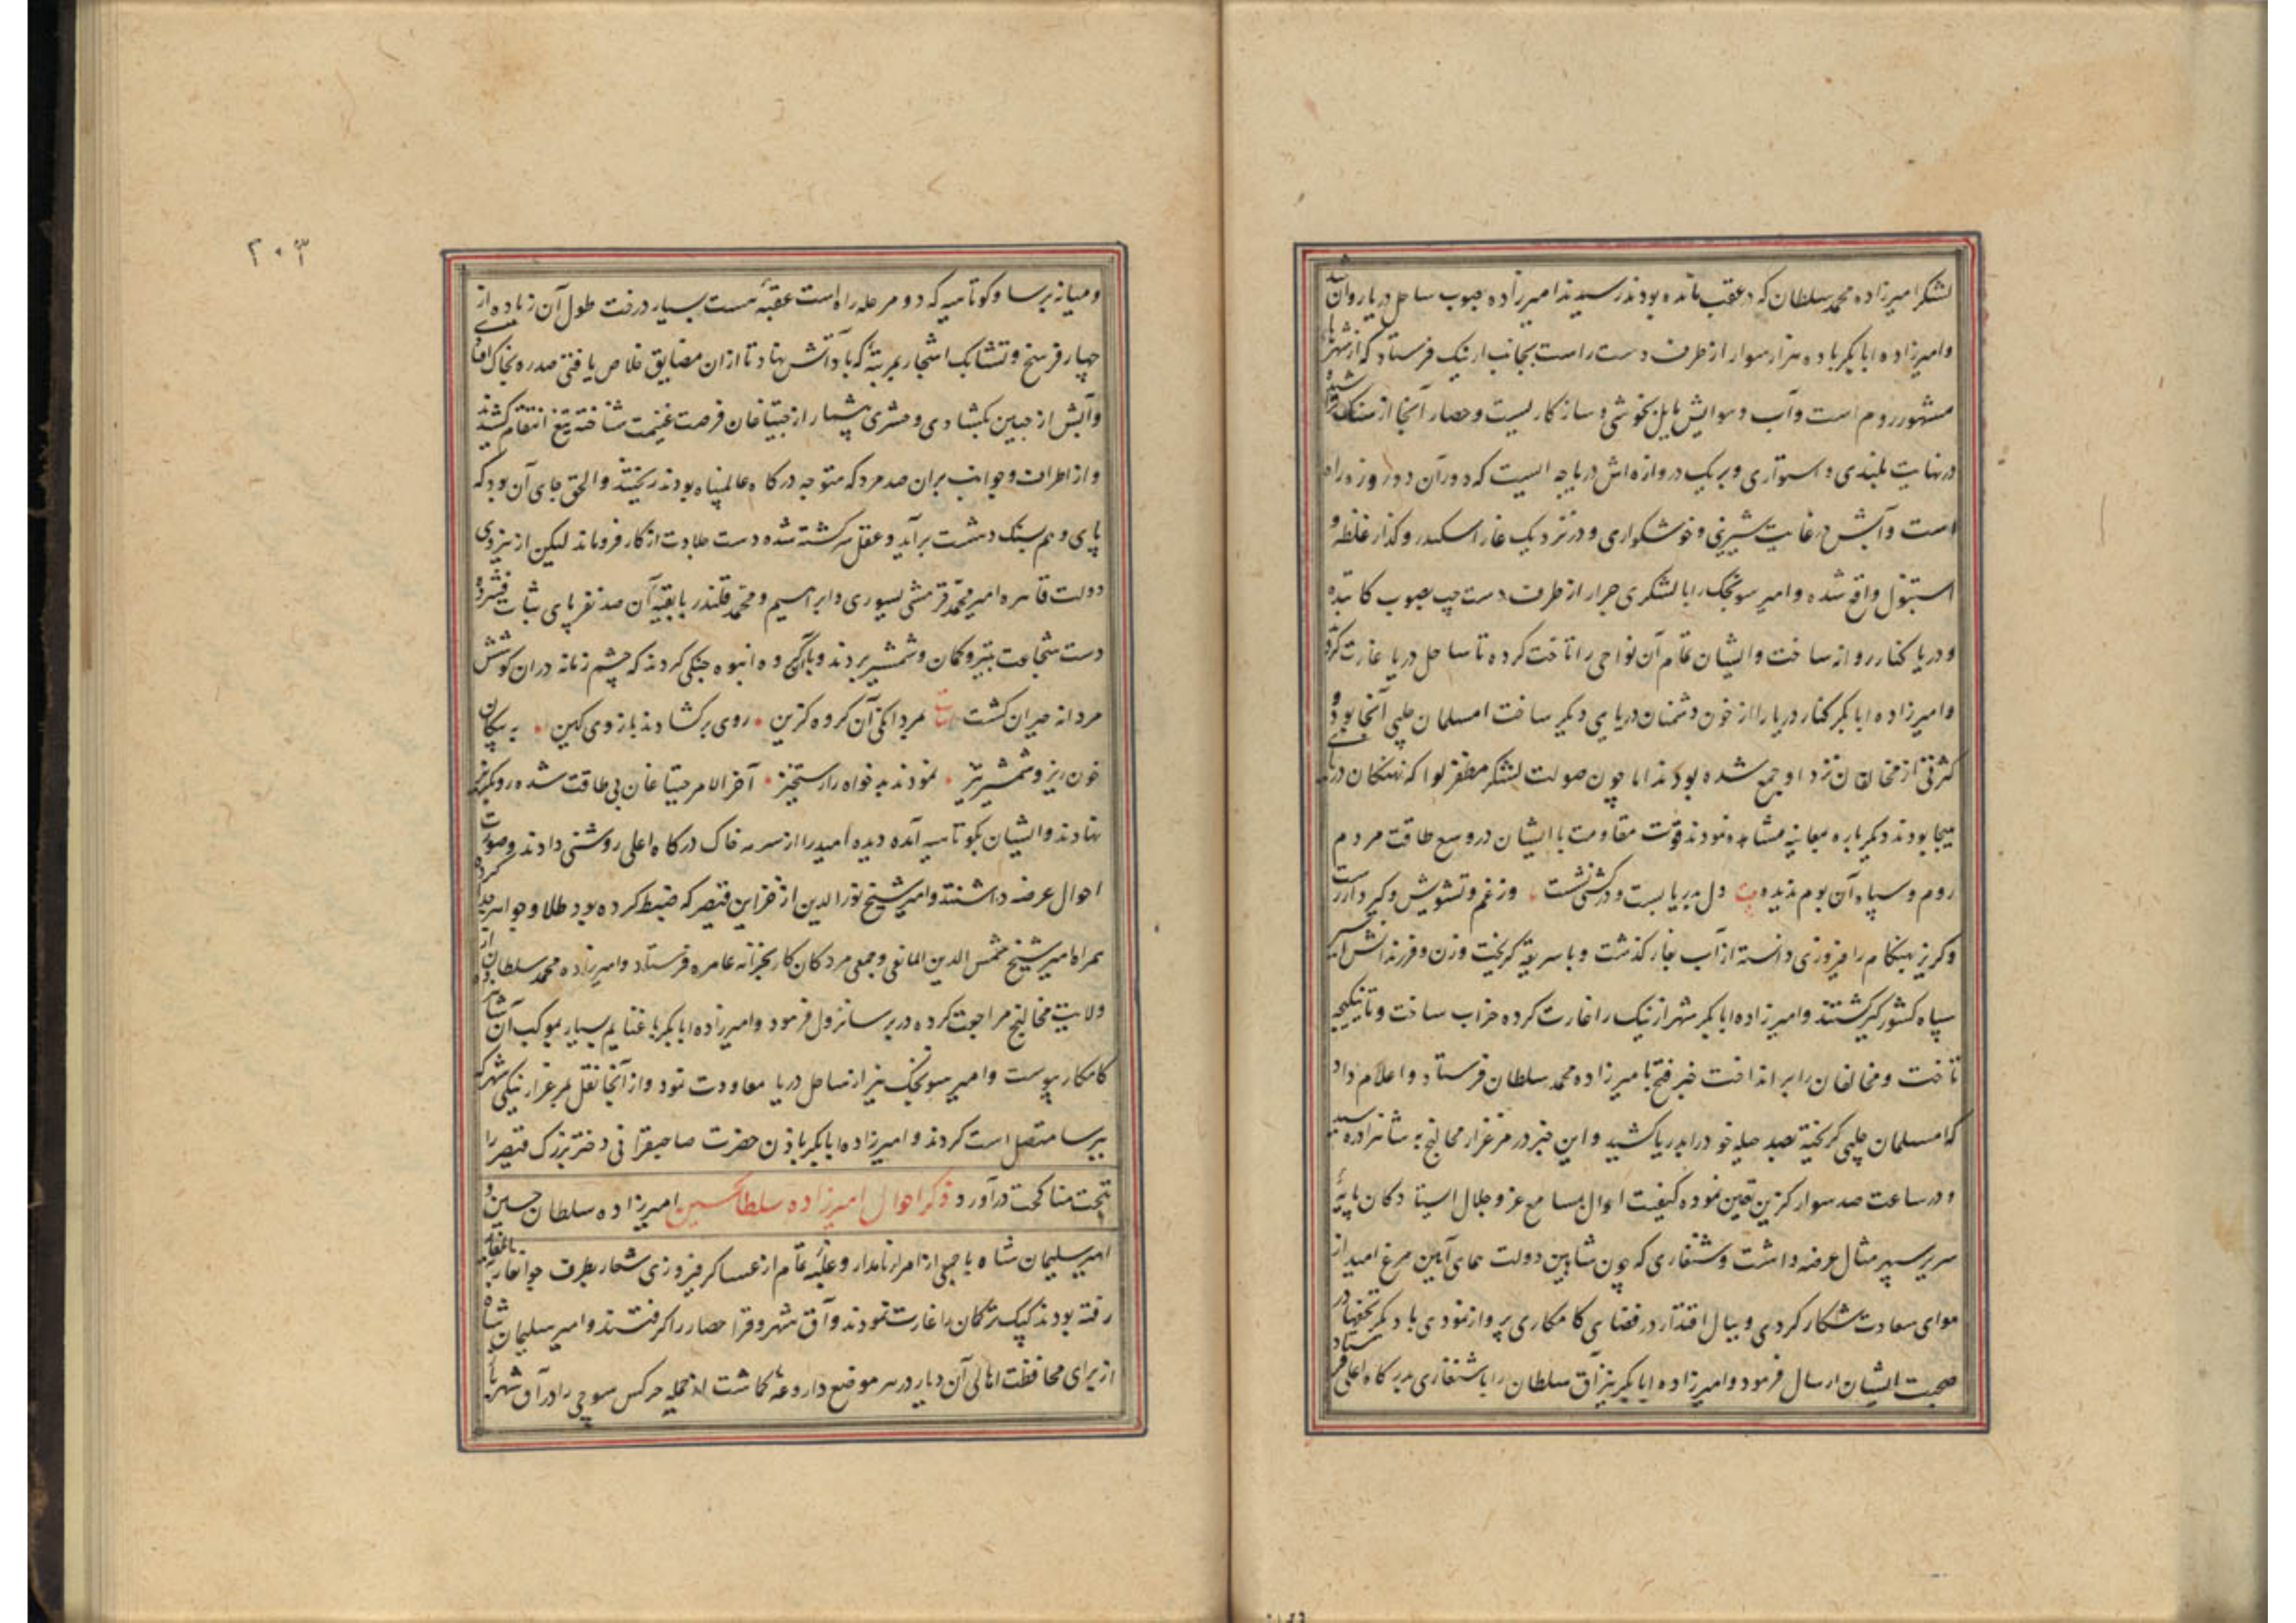 لشکر امیرزاده محمد سلطان که در عقب مانده بودند رسیدند امیرزاده بصوب ساحل دریا روان شد
و امیرزاده ابابکر با ده هزار سوار از طرف دست راست بجانب ازنیک فرستاد که از شهرهای
مشهور روم است و آب و هوایش مایل بخوشی و سازکاریست و حصار آنجا از سنک تراشیده
در نهایت بلندی و استواری و بر یک دروازه‌اش دریاچه ایست که دور آن دو روزه راه
است و آبش در غایت شیرینی و خوشکواری و در نزدیک غار اسکندر و کذار غلطه و
استنبول واقع شده و امیر سونجک را با لشکری جرار از طرف دست چپ بصوب کاینده
و دریا کنار روانه ساخت و ایشان تمام آن نواحی را تاخت کرده تا ساحل دریا غارت کردند
و امیرزاده ابابکر کنار دریا را از خون دشمنان دریایی دیکر ساخت امسلمان چلپی آنجا بود و
کثرتی از مخالفان نزد او جمع شده بودند اما چون صولت لشکر مظفر لوا که نهنکان دریای
هیجا بودند دیکر باره معاینه مشاهده نمودند قوت مقاومت با ایشان در وسع طاقت مردم
روم و سپاه آن بوم ندیده بیت دل بدریا بست و در کشتی نشست وز غم و تشویش و کیر و دار رست
و کریز بهنکام را فیروزی دانسته از آب بغار کذشت و باسریقه کریخت و زن و فرزندانش اسیر
سپاه کشورکیر کشتند و امیرزاده ابابکر شهر ازنیک را غارت کرده خراب ساخت و تا ینکیجه
تاخت و مخالفان را برانداخت خبر فتح بامیرزاده محمد سلطان فرستاد و اعلام داد
که امسلمان چلپی کریخته بصد حیله خود را بدریا کشید و این خبر در مرغزار مخالیج به شاهزاده رسید
و در ساعت صد سوار کزین تعین نموده کیفیت احوال بمسامع عز و جلال ایستادکان پایهٔ
سریر سپهر مثال عرضه داشت و شنقاری که چون شاهین دولت همای آیین مرغ امید از
هوای سعادت شکار کردی و ببال اقتدار در فضای کامکاری پرواز نمودی با دیکر تحفها در
صحبت ایشان ارسال فرمود و امیرزاده ابابکر نیز آق سلطان را با شنقاری بدرکاه اعلی فرستاد
۲۰۳
و میانه برسا و کوتاهیه که دو مرحله راه است عقبهٔ هست بسیار درخت طول آن زیاده از
چهار فرسخ و تشابک اشجار بمرتبهٔ که باد آتش نهاد تا از ان مضایق خلاص یافتی صد ره بخاک افتادی
و آبش از جبین بکشادی و حشری بیشمار از جیتاغان فرصت غنیمت شناخته تیغ انتقام کشیدند
و از اطراف و جوانب بران صد مرد که متوجه درکاه عالم‌پناه بودند ریختند و الحق جای آن بود که
پای وهم بسنک دهشت برآید و عقل سرکشته شده دست جلادت از کار فروماند لیکن از نیروی
دولت قاهره امیر محمد قرمشی یسوری و ابراهیم و محمد قلندر با بقیه آن صد نفر پای ثبات فشرده
دست شجاعت بتیر و کمان و شمشیر بردند و با آن کروه انبوه جنکی کردند که چشم زمانه دران کوشش
مردانه حیران کشت بیت بمردانکی آن کروه کزین روی برکشادند بازوی کین به پیکان
خون‌ریز و شمشیر تیز نمودند بدخواه را رستخیز آخر الامر جیتاغان بی طاقت شده رو بکریز
نهادند و ایشان بکوتاهیه آمده دیده امید را از سرمه خاک درکاه اعلی روشنی دادند و صورت
احوال عرضه داشتند و امیر شیخ نورالدین از خزاین قیصر که ضبط کرده بود طلا و جواهر جدا کرده
همراه امیر شیخ شمس الدین المانعی و جمعی مردکان کار بخزانه عامره فرستاد و امیرزاده محمد سلطان از
ولایت مخالیج مراجعت کرده در برسا نزول فرمود و امیرزاده ابابکر با غنایم بسیار بموکب آن شاهزاده
کامکار پیوست و امیر سونجک نیز از ساحل دریا معاودت نمود و از آنجا نقل بمرغزار ینکی شهر که
ببرسا متصل است کردند و امیرزاده ابابکر باذن حضرت صاحبقرانی دختر بزرک قیصر را
بتحت مناکحت درآورد ذکر احوال امیرزاده سلطان حسین امیرزاده سلطان حسین و
امیر سلیمان شاه با جمعی از امراء نامدار و غلبهٔ تمام از عساکر فیروزی شعار بطرف جوانغار بایغار
رفته بودند کپک ترکمان را غارت نمودند و آق شهر و قراحصار را کرفتند و امیر سلیمان شاه
از برای محافظت اهالی آن دیار در هر موضع داروغه کماشت از جمله چرکس سوچی را در آق شهر